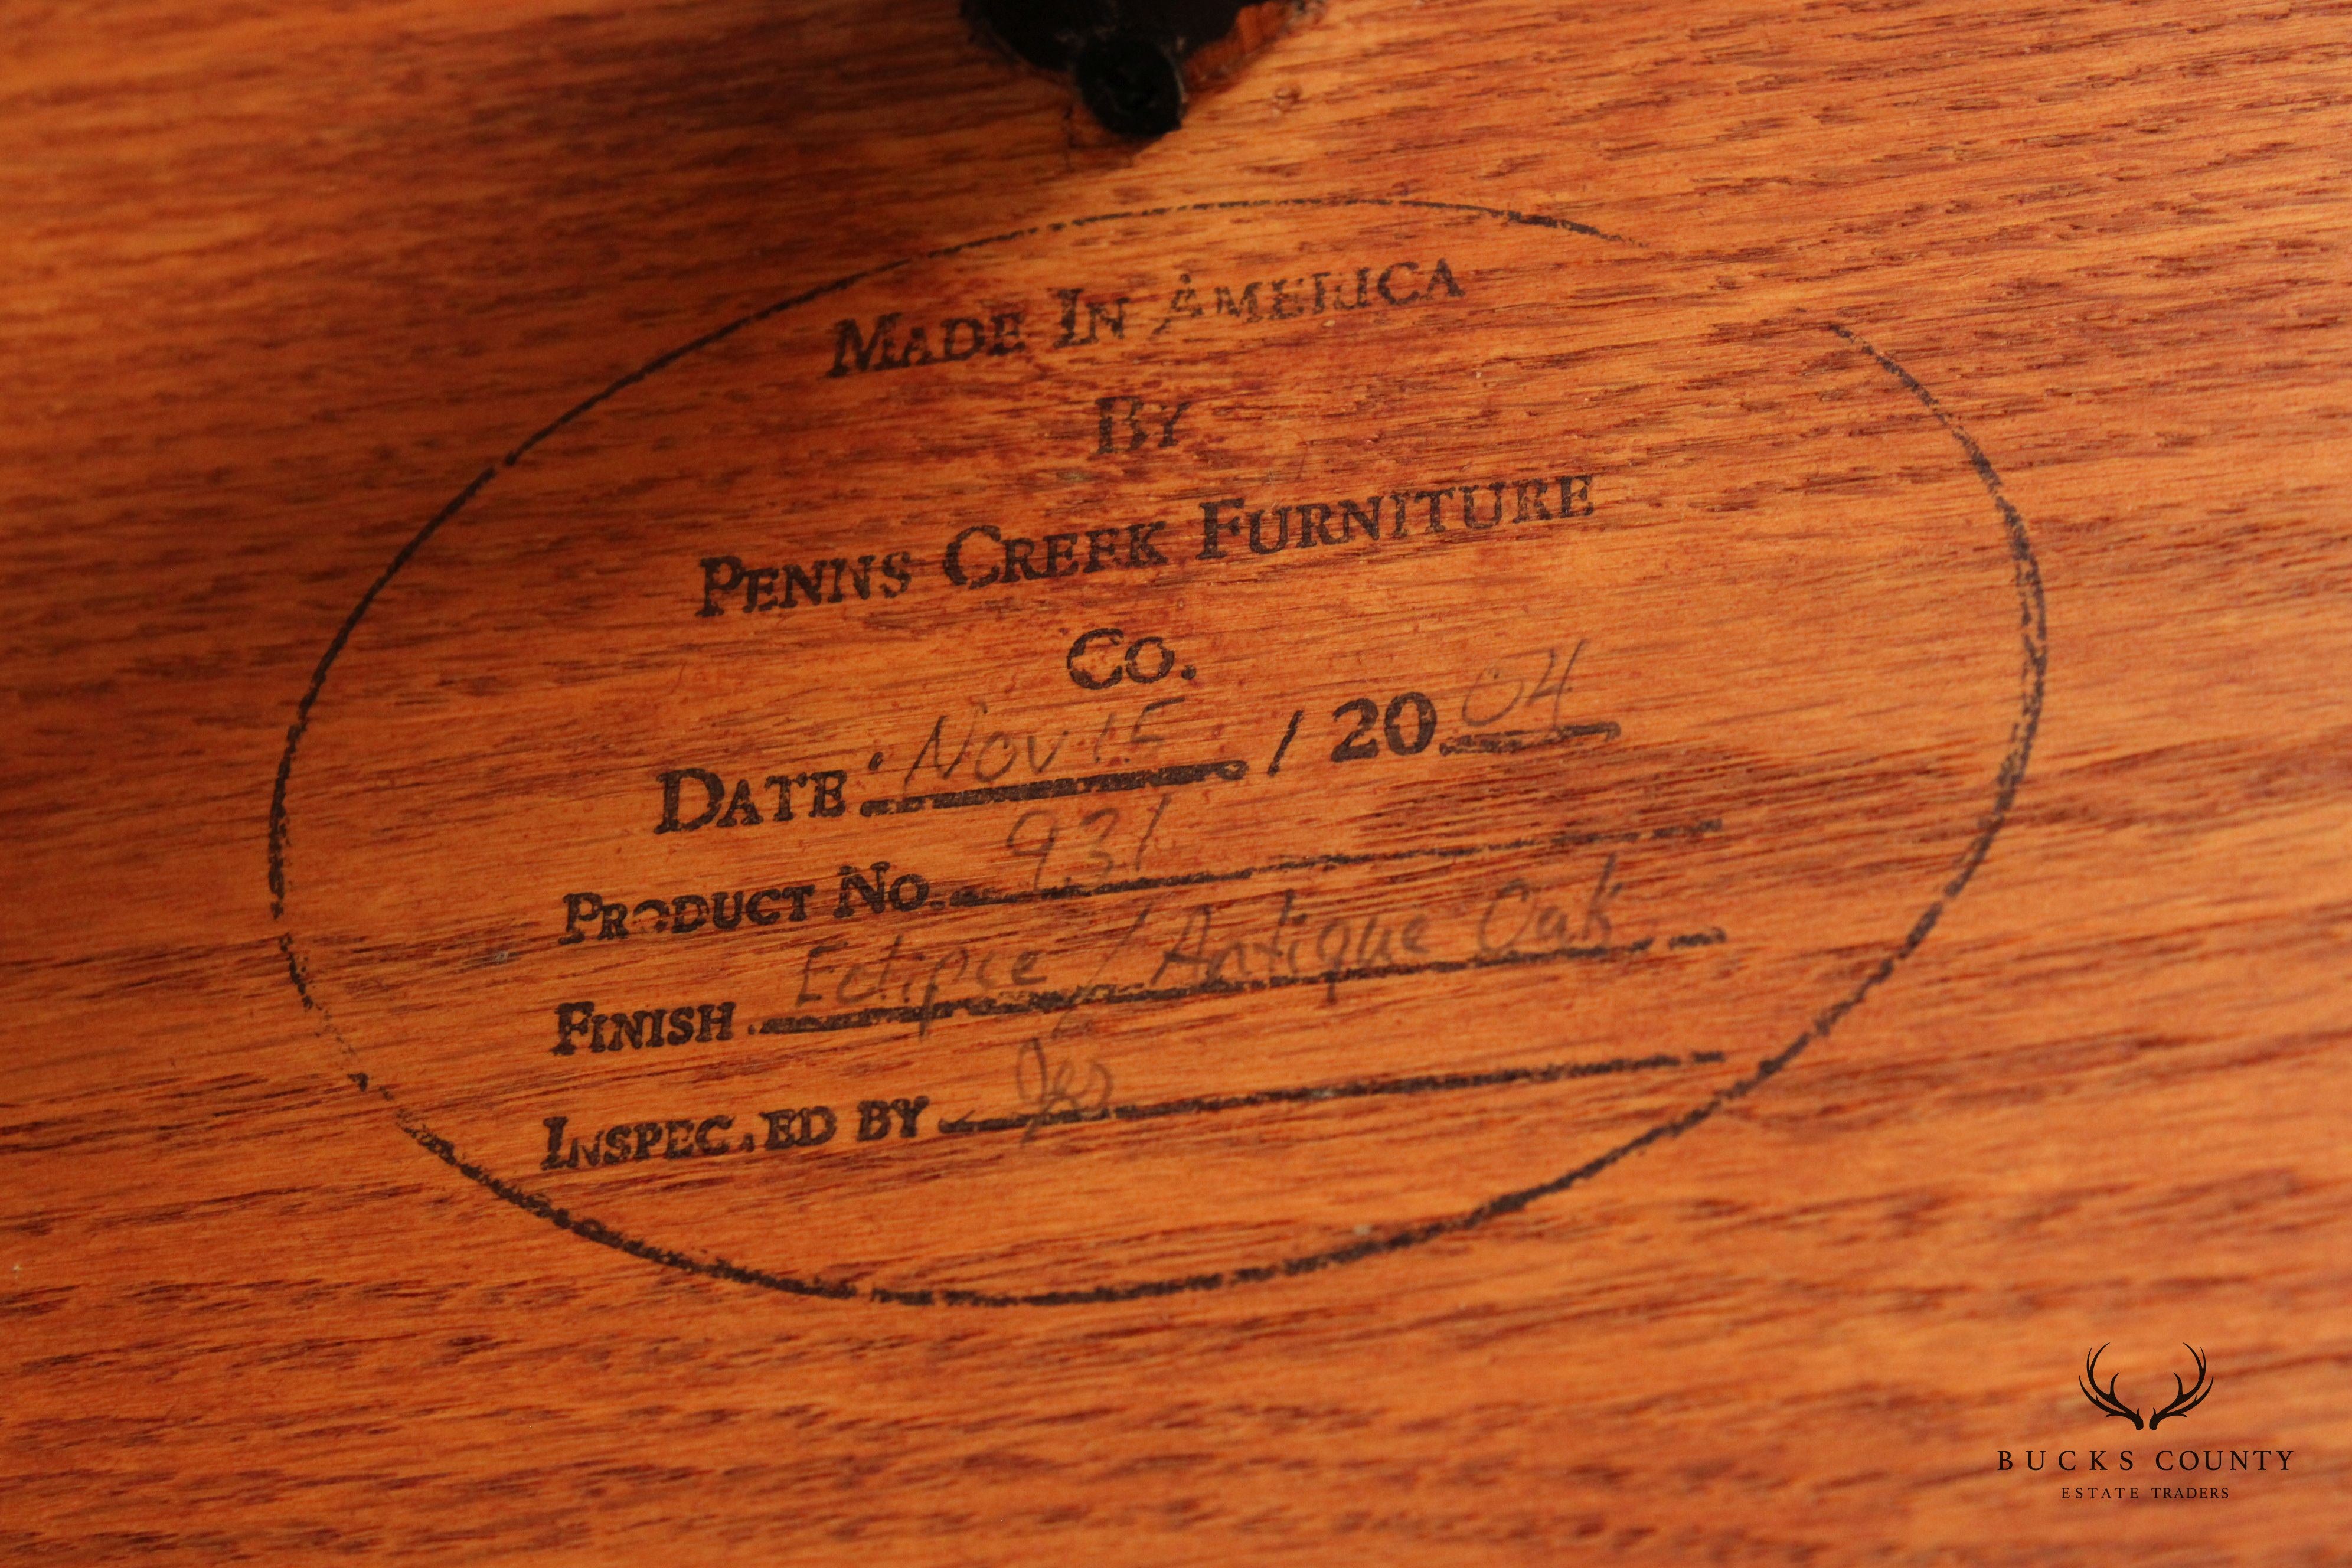 MADE IN AMERICA
BY
PENNS CREEK FURNITURE
CO.
DATE. Nov 15 / 20 04
PRODUCT NO. 931
FINISH. Eclipce / Antique Oak
INSPECTED BY
BUCKS COUNTY
ESTATE TRADERS